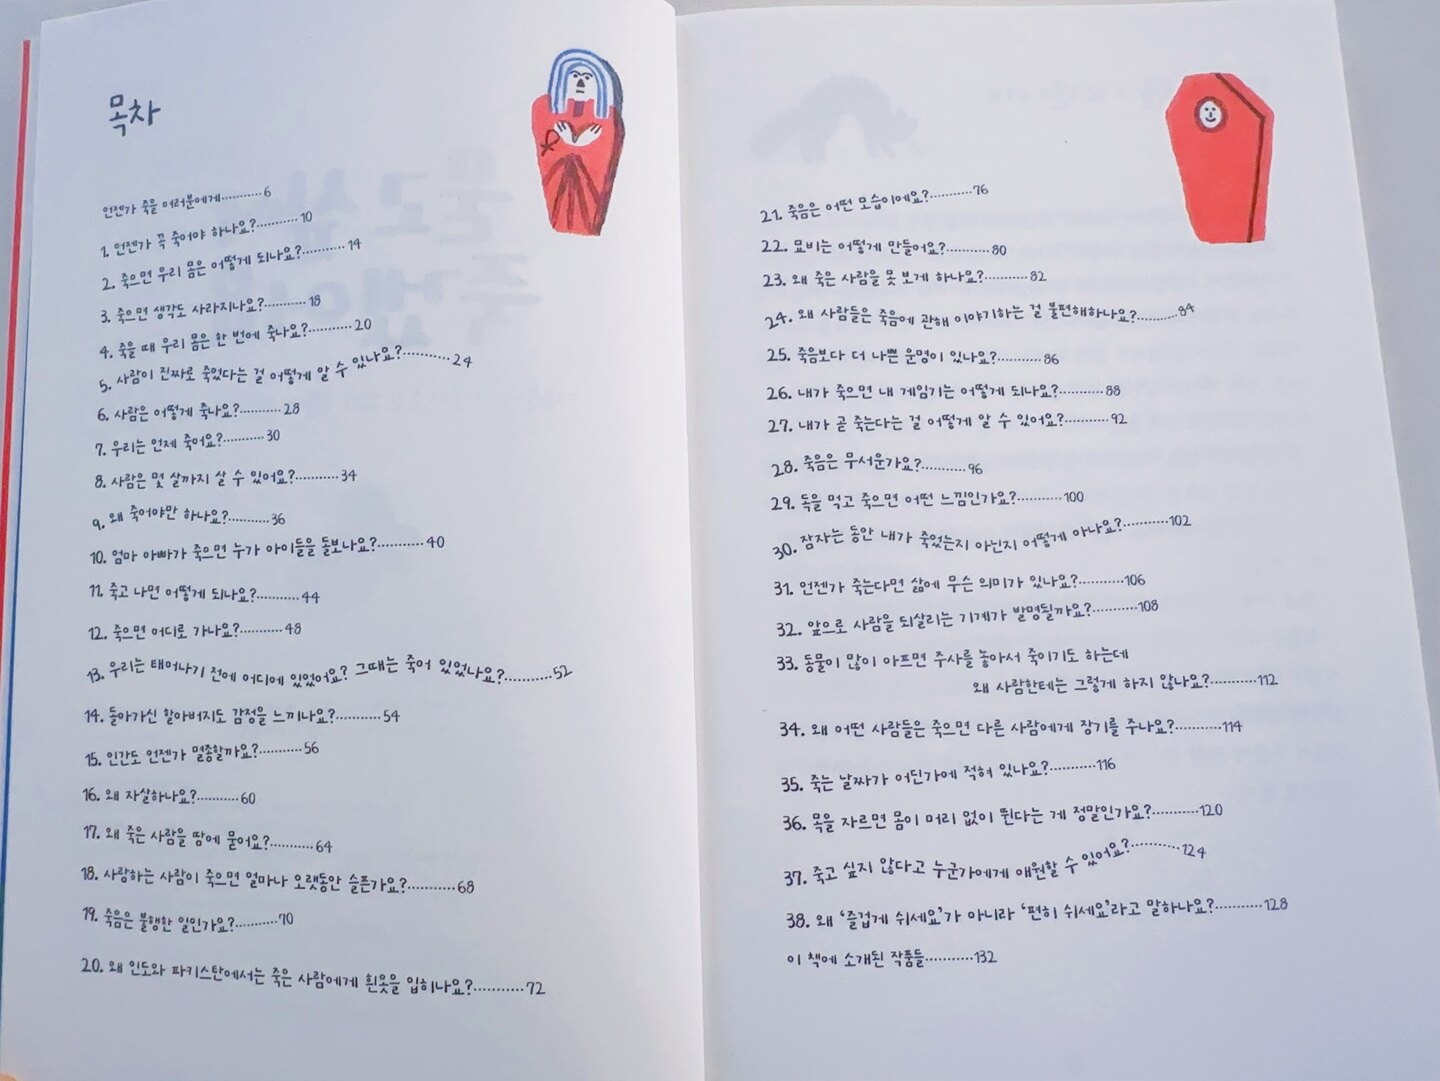 목차
언젠가 죽을 여러분에게···········6
1. 언젠가 꼭 죽어야 하나요?···········10
2. 죽으면 우리 몸은 어떻게 되나요?···········14
3. 죽으면 생각도 사라지나요?···········18
4. 죽을 때 우리 몸은 한 번에 죽나요?···········20
5. 사람이 진짜로 죽었다는 걸 어떻게 알 수 있나요?···········24
6. 사람은 어떻게 죽나요?···········28
7. 우리는 언제 죽어요?···········30
8. 사람은 몇 살까지 살 수 있어요?···········34
9. 왜 죽어야만 하나요?···········36
10. 엄마 아빠가 죽으면 누가 아이들을 돌보나요?···········40
11. 죽고 나면 어떻게 되나요?···········44
12. 죽으면 어디로 가나요?···········48
13. 우리는 태어나기 전에 어디에 있었어요? 그때는 죽어 있었나요?···········52
14. 돌아가신 할아버지도 감정을 느끼나요?···········54
15. 인간도 언젠가 멸종할까요?···········56
16. 왜 자살하나요?···········60
17. 왜 죽은 사람을 땅에 묻어요?···········64
18. 사랑하는 사람이 죽으면 얼마나 오랫동안 슬픈가요?···········68
19. 죽음은 불행한 일인가요?···········70
20. 왜 인도와 파키스탄에서는 죽은 사람에게 흰옷을 입히나요?···········72
21. 죽음은 어떤 모습이에요?···········76
22. 묘비는 어떻게 만들어요?···········80
23. 왜 죽은 사람을 못 보게 하나요?···········82
24. 왜 사람들은 죽음에 관해 이야기하는 걸 불편해하나요?···········84
25. 죽음보다 더 나쁜 운명이 있나요?···········86
26. 내가 죽으면 내 게임기는 어떻게 되나요?···········88
27. 내가 곧 죽는다는 걸 어떻게 알 수 있어요?···········92
28. 죽음은 무서운가요?···········96
29. 독을 먹고 죽으면 어떤 느낌인가요?···········100
30. 잠자는 동안 내가 죽었는지 아닌지 어떻게 아나요?···········102
31. 언젠가 죽는다면 삶에 무슨 의미가 있나요?···········106
32. 앞으로 사람을 되살리는 기계가 발명될까요?···········108
33. 동물이 많이 아프면 주사를 놓아서 죽이기도 하는데
왜 사람한테는 그렇게 하지 않나요?···········112
34. 왜 어떤 사람들은 죽으면 다른 사람에게 장기를 주나요?···········114
35. 죽는 날짜가 어딘가에 적혀 있나요?···········116
36. 목을 자르면 몸이 머리 없이 뛴다는 게 정말인가요?···········120
37. 죽고 싶지 않다고 누군가에게 애원할 수 있어요?···········124
38. 왜 ‘즐겁게 쉬세요’가 아니라 ‘편히 쉬세요’라고 말하나요?···········128
이 책에 소개된 작품들···········132